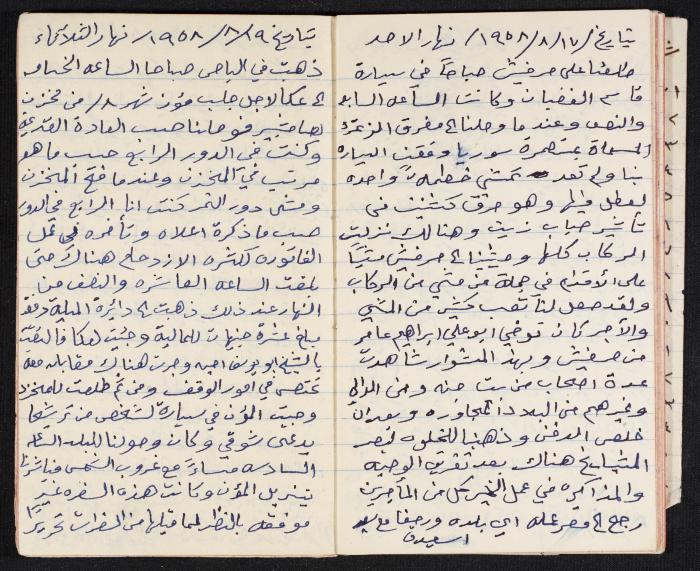 تاريخ/ ١٧/ ٨/ ١٩٥٨/ نهار الاحد
طلعنا على حرفيش صباحاً في سيارة
قاسم الغضبان وكانت الساعه السابعه
والنصف وعندما وصلنا الى مفرق المزرعه
المسماة عتصمرة سوريا وقفت السياره
بنا ولم تعد تمشي خطوةً واحده
لعطل فيها وهو حرق
تأثير صباب زيت وهنالك نزلت
الركاب كلها ومشينا الى حرفيش مشياً
على الأقدام في جملة من مشي من الركاب
ولقد حصل لنا تعب كثير من المشي
والأجر كان توفي ابو علي ابراهيم عامر
من حرفيش وبهذا المشوار شاهدت
عدة اصحاب من بيت جنه ومن
وغيرهم من البلاد المجاوره وبعد ان
خلص الدفن وذهبنا للخلوه لبصر
المشايخ هناك بعد تفريق الوجبه
والمذاكره في عمل الخير كل من المأجرين
رجع الى مقر عمله اي بلده ورجعنا مع
اسعيد
تاريخ ١٩/ ٨/ ١٩٥٨/ نهار الثلاثاء
ذهبت في الباص صباحا الساعه الخامسه
الى عكا لاجل جلب مؤن شهر ٨/ من مخزن
لصاحبنيير فوصلنا حسب العادة القديمه
وكنت في الدور الرابع حسب ما هو
مرتب في المخزن وعندما فتح المخزن
ومشى دور النمر كنت انا الرابع في الدور
حسب ما ذكرة اعلاه وتأخره في عمل
الفاتوره لكثره الازدحام هناك حتى
بلغت الساعه العاشره والنصف من
النهار عند ذلك ذهبت الى دائرة الملية دفعة
مبلغ عشرة جنيهات للمالية وجئت لعكا فالتقت
بالشيخ ابو يوسف احمد وجرت هناك مقابله معه
تختص في امور الوقف ومن ثم طلعت للمخزن
وجبت المؤن في سيارة لشخص من ترشيحا
يدعى شوقي وكان وصولنا للبلد الساعه
السادسه مساءً مع غروب الشمس وباشرنا
بتنزيل المؤن وكانت هذه السفره غير
موفقه بالنظر لما قبلها من السفرات تحريراً